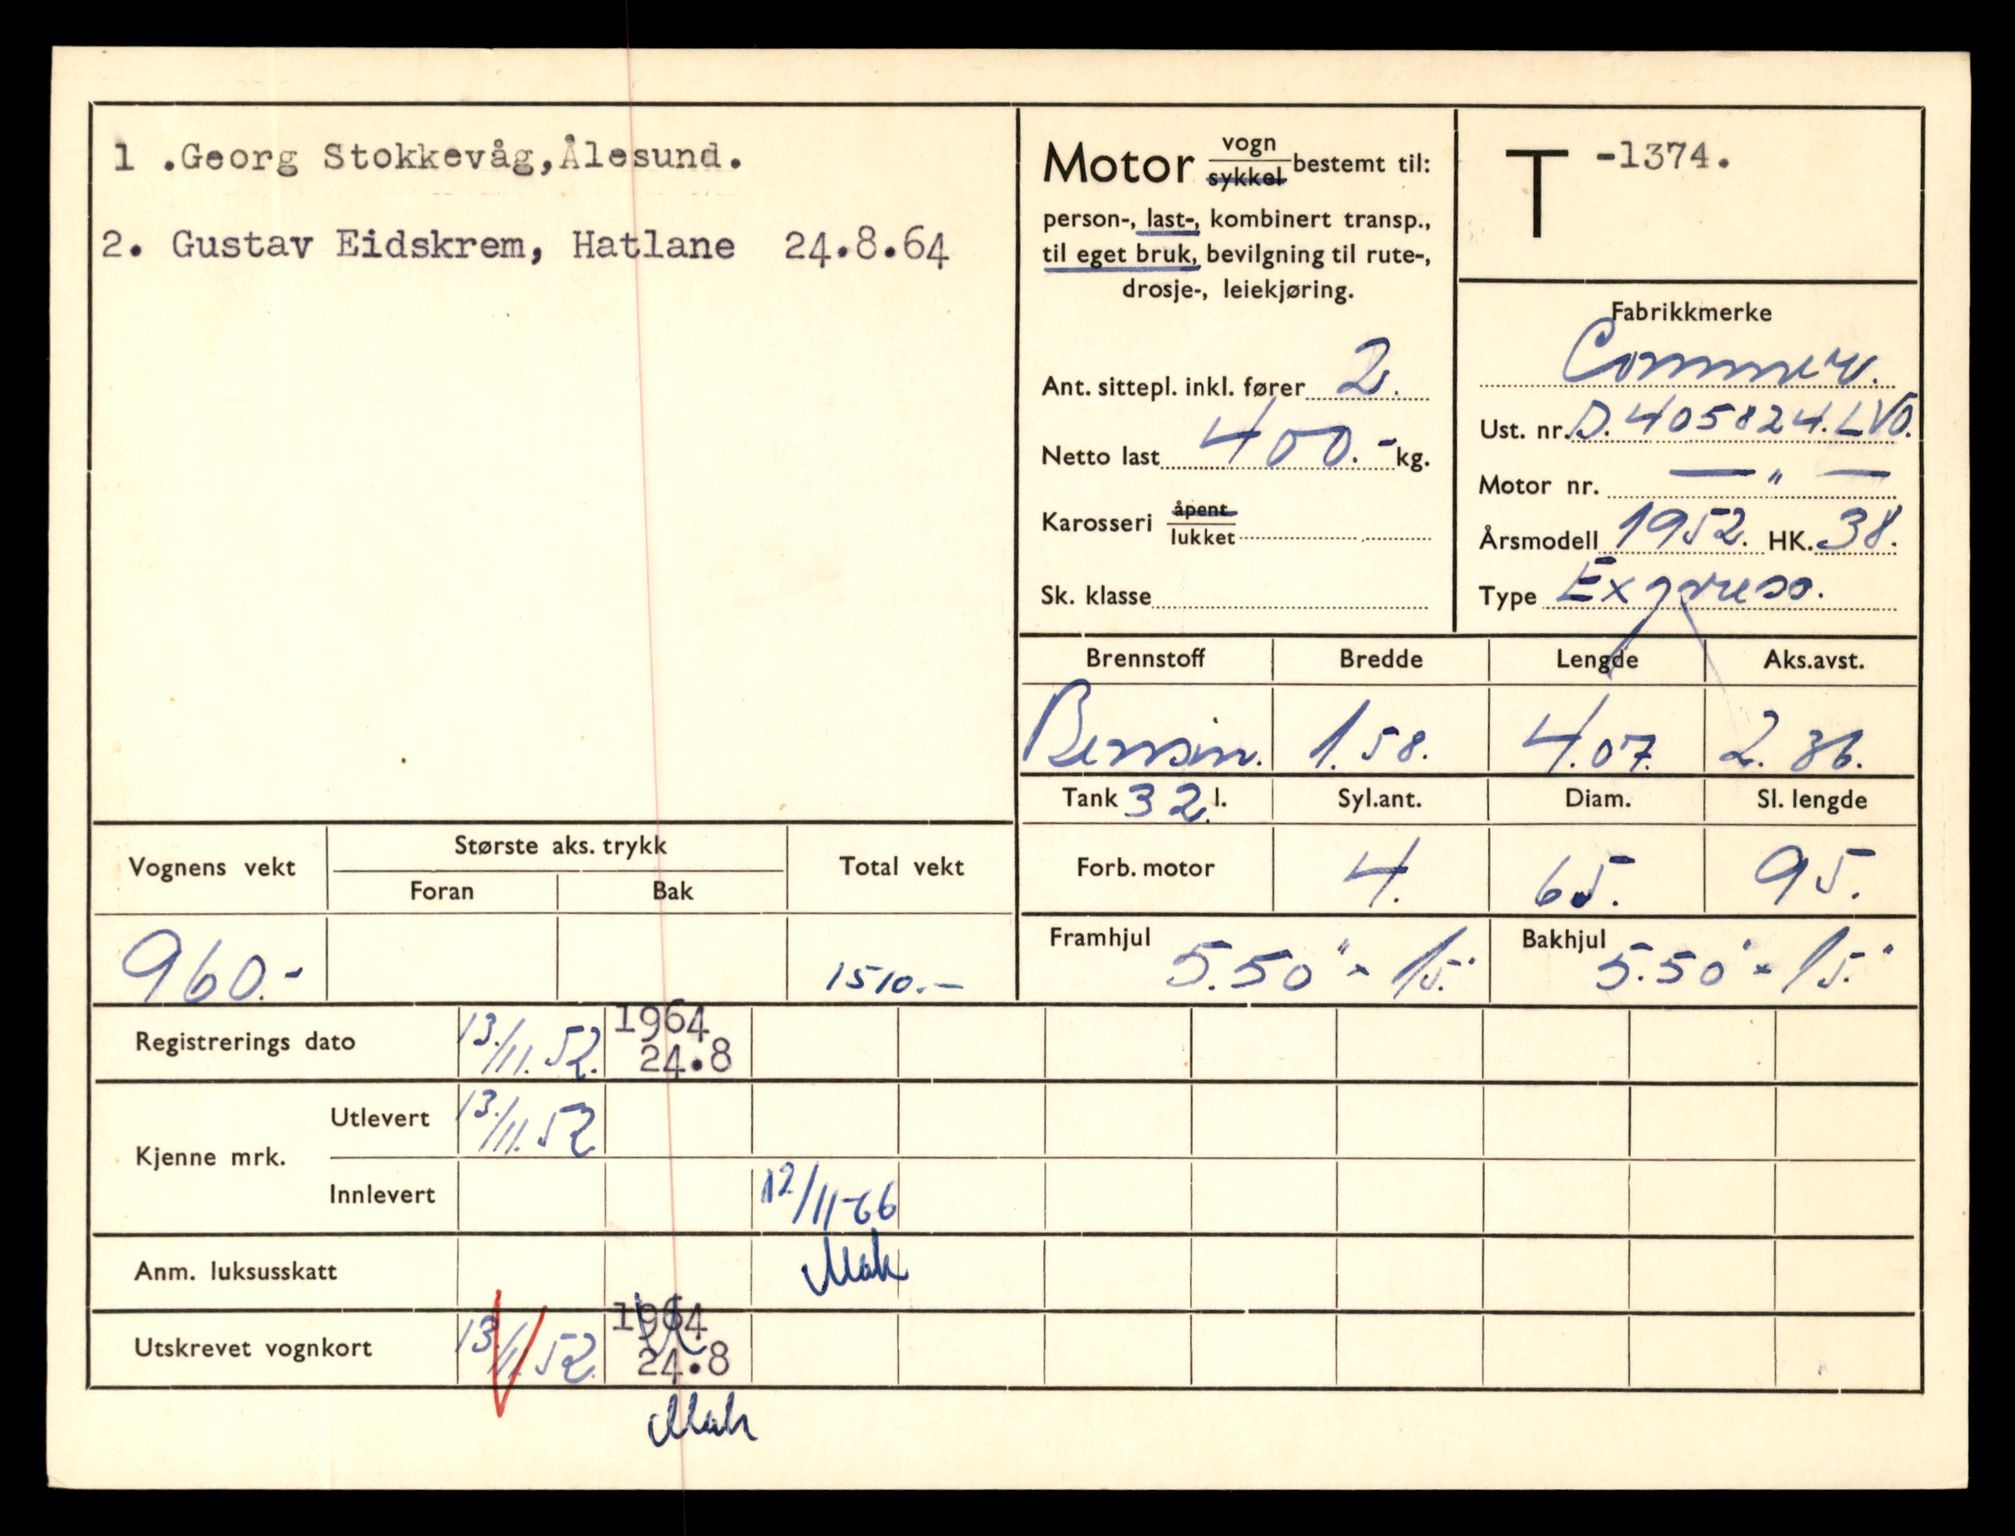 1 .Georg Stokkevåg,Ålesund.
2. Gustav Eidskrem, Hatlane 24.8.64
Motor vogn
sykkel bestemt til:
person-, last-, kombinert transp.,
til eget bruk, bevilgning til rute-,
drosje-, leiekjøring.
Ant. sittepl. inkl. fører 2.
Netto last 400.- kg.
Karosseri åpent
lukket
Sk. klasse
T -1374.
Fabrikkmerke
Commer.
Ust. nr. D. 405824. LVO.
Motor nr. — " —
Årsmodell 1952. HK. 38.
Type Express.
Brennstoff Bredde Lengde Aks.avst.
Bensin. 1.58. 4.07. 2.36.
Tank 32 l. Syl.ant. Diam. Sl. lengde
Forb. motor 4. 65. 95.
Framhjul 5.50" × 15." Bakhjul 5.50" × 15."
Vognens vekt Største aks. trykk Total vekt
Foran Bak
960.- 1510.-
Registrerings dato 13./11. 52. 1964
24.8
Kjenne mrk. Utlevert 13./11. 52
Innlevert 12/11-66
Anm. luksusskatt Mak
Utskrevet vognkort 13./11. 52. 1964
24.8
Mak